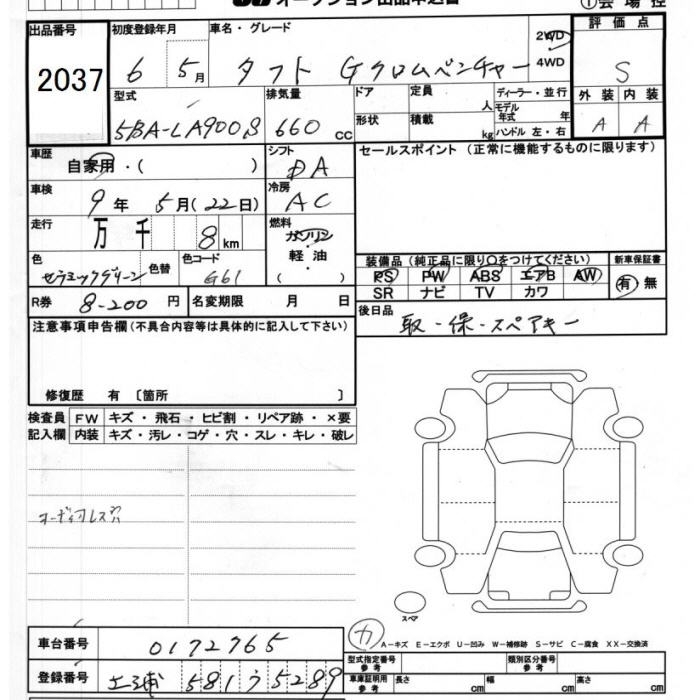 オークション出品申込書
①会場控
出品番号 2037
初度登録年月 6 5月
車名・グレード タフト Gクロムベンチャー
2WD 4WD
評価点 S
型式 5BA-LA900S
排気量 660 cc
ドア 形状
定員 人 積載 kg
ディーラー・並行
モデル年式 年
ハンドル 左・右
外装 A 内装 A
車歴 自家用・( )
シフト DA
セールスポイント (正常に機能するものに限ります)
車検 9年 5月(22日)
冷房 AC
走行 万 千 8km
燃料 ガソリン・軽油 ( )
色 セラミックグリーン 色替
色コード G61
装備品 (純正品に限り〇をつけてください)
PS PW ABS エアB AW
SR ナビ TV カワ
新車保証書 有・無
R券 8-200円
名変期限 月 日
後日品 取・保・スペアキー
注意事項申告欄(不具合内容等は具体的に記入して下さい)
修復歴 有 〔箇所 〕
検査員記入欄
FW キズ・飛石・ヒビ割・リペア跡・×要
内装 キズ・汚レ・コゲ・穴・スレ・キレ・破レ
オーディオレス
スペア
A−キズ E−エクボ U−凹み W−補修跡 S−サビ C−腐食 XX−交換済
車台番号 0172765
登録番号 土浦 581 す 5289
型式指定番号 参考
類別区分番号 参考
車庫証明用 参考 長さ cm 幅 cm 高さ cm